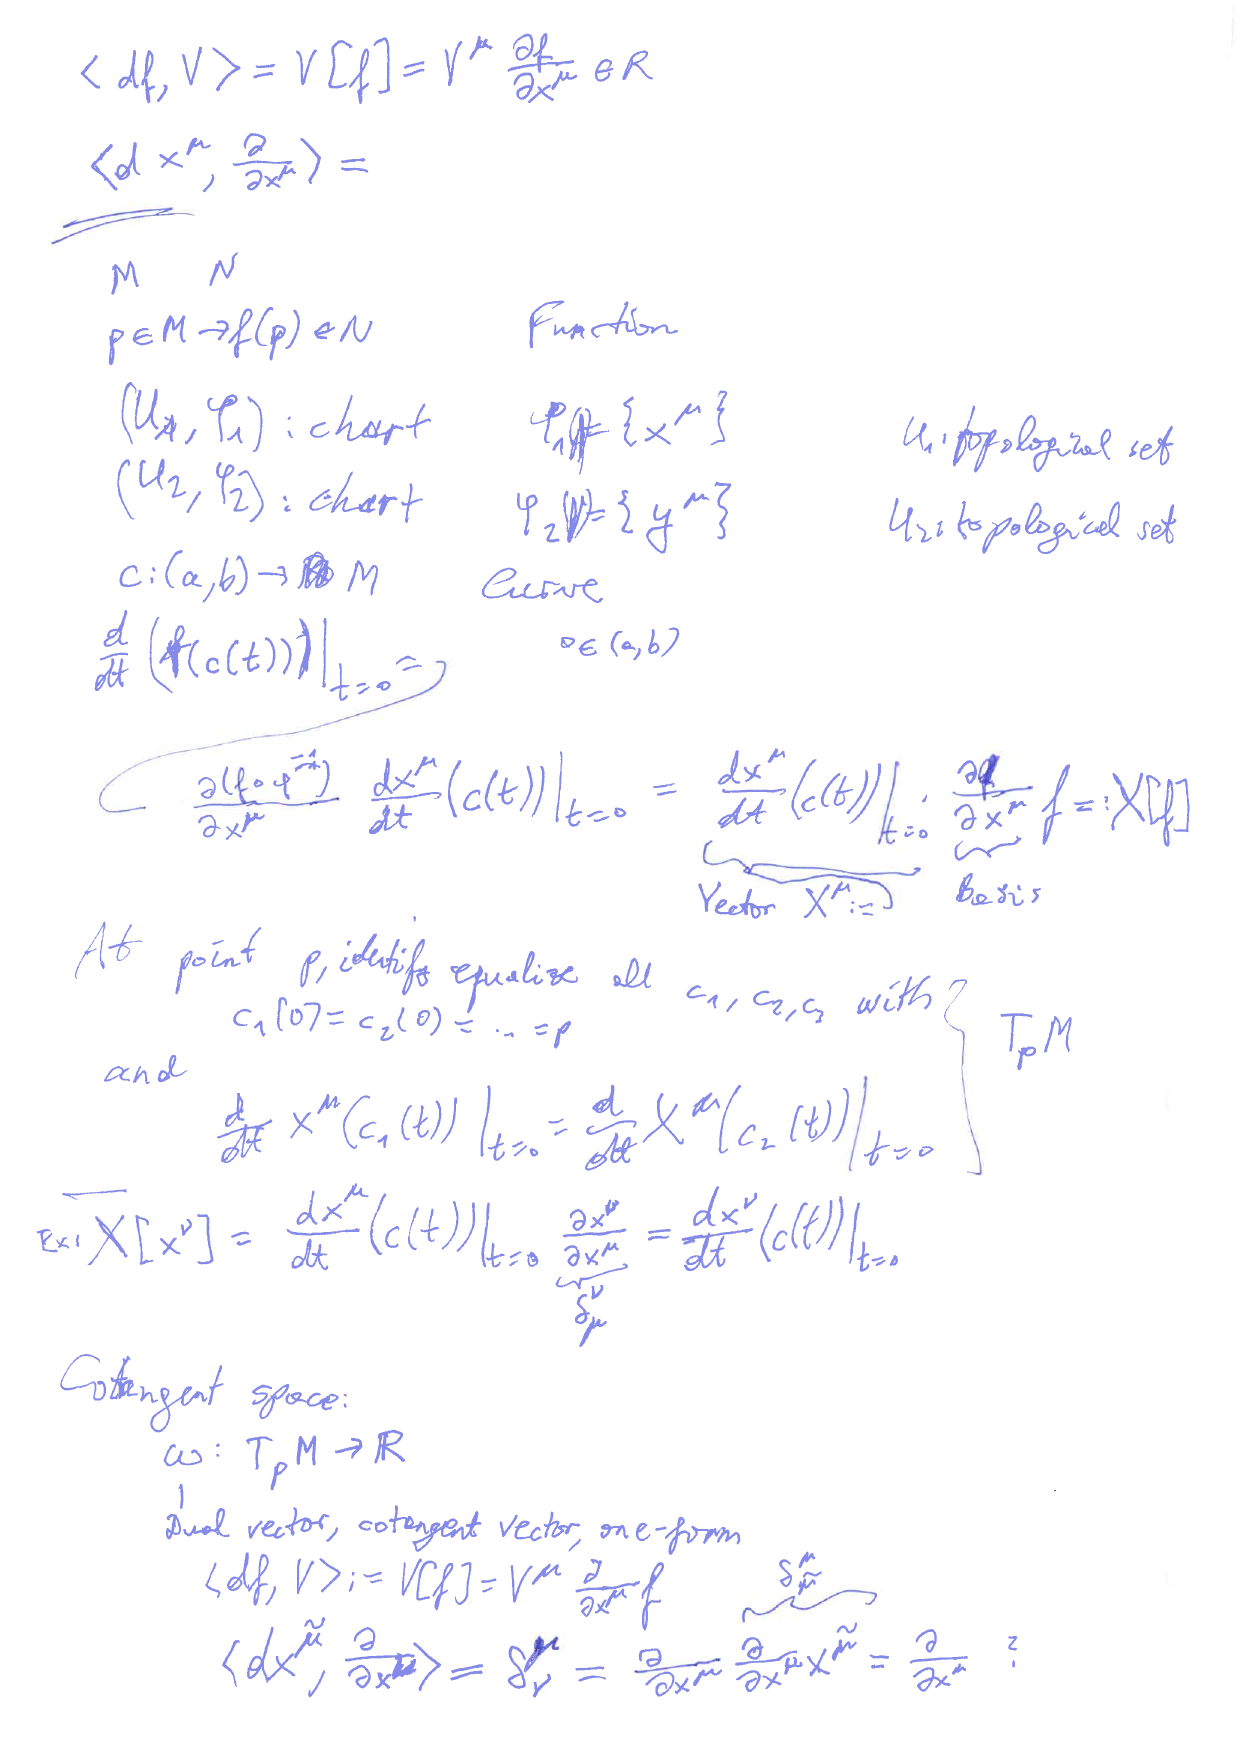 < df, V > = V [f] = V^μ ∂f/∂x^μ ∈ R
<d x^μ, ∂/∂x^μ> =
M N
p ∈ M → f(p) ∈ N Function
(U_1, φ_1) : chart φ_1 = {x^μ} U_1: topological set
(U_2, φ_2) : chart φ_2 = {y^μ} U_2: topological set
c : (a, b) → M Curve
d/dt (f(c(t)))|_{t=0} = 0 ∈ (a, b)
∂(f∘φ^{-1})/∂x^μ dx^μ/dt (c(t))|_{t=0} = dx^μ/dt (c(t))|_{t=0} ∂/∂x^μ f =: X[f]
Vector X^μ := Basis
At point p, identify equalize all c_1, c_2, c_3 with
c_1(0) = c_2(0) = ... = p T_p M
and
d/dt x^μ(c_1(t))|_{t=0} = d/dt x^μ(c_2(t))|_{t=0}
Ex: X[x^ν] = dx^μ/dt (c(t))|_{t=0} ∂x^ν/∂x^μ = dx^ν/dt (c(t))|_{t=0}
δ^ν_μ
Cotangent space:
ω : T_p M → ℝ
Dual vector, cotangent vector, one-form
<df, V> := V[f] = V^μ ∂/∂x^μ f δ^μ_μ̃
<dx^μ̃, ∂/∂x^μ> = δ^μ_ν = ∂/∂x^μ ∂/∂x^μ x^μ̃ = ∂/∂x^μ ?